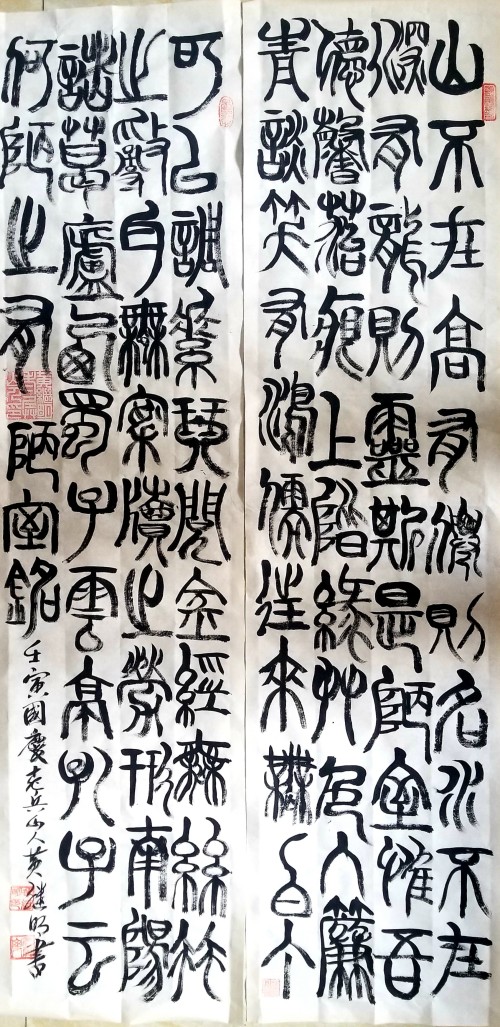 山不在高有僊則名水不在
深有龍則靈斯是陋室惟吾
德馨苔痕上階綠艸色入簾
青談笑有鴻儒往來無白丁
可以調素琴閱金經無絲竹
之亂耳無案牘之勞形南陽
諸葛廬西蜀子雲亭孔子云
何陋之有陋室銘
壬寅國慶老兵山人黄明書